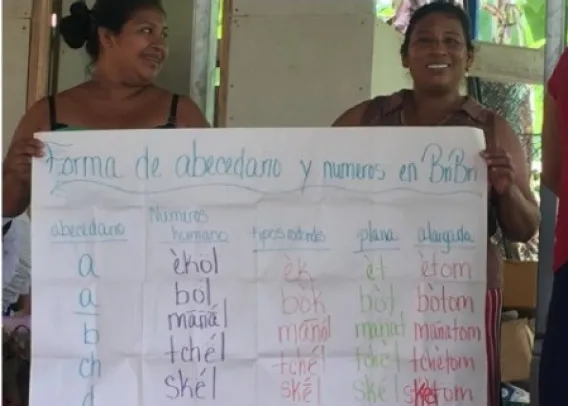 Forma de abecedario y numeros en BriBri
abecedario Numeros humano tipos redondos plana alargada
a èköl èk èt ètom
a ból bök bòt bòtom
b mañál mañál mañat mañatom
ch tchél tché̱l tchél tchétom
d skél skél skél sketom